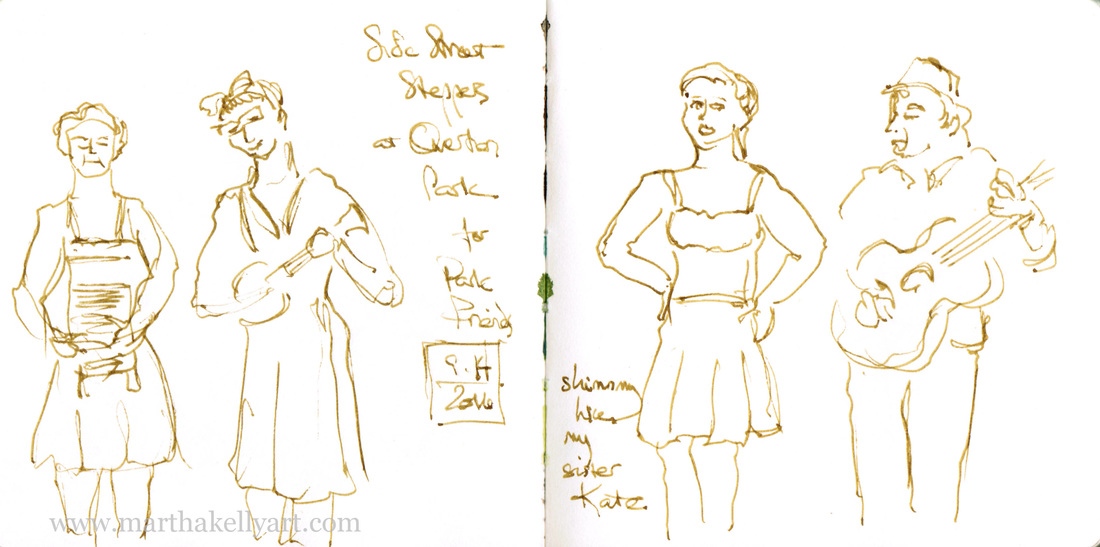 Side Street
Steppers
at Overton
Park
for
Park
Friends
9.14
2016
shimmy
like
my
sister
Kate.
www.marthakellyart.com